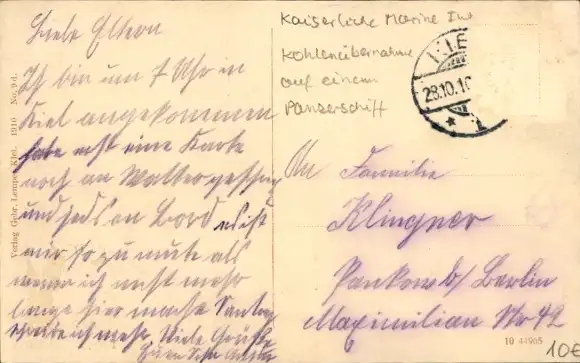 Kaiserliche Marine
Kohlenübernahme
auf einem
Panzerschiff
KIE
28.10.10
* 1
Liebe Eltern
Ich bin um 7 Uhr in
Kiel angekommen
habe erst eine Karte
noch an Walter
und jetzt an Bord
mir so zu mute als
wenn ich nicht mehr
lange hier mache
schreibe ich mehr Viele Grüße
An Familie
Klingner
Pankow b/ Berlin
Maximilian Str 42
Verlag Gebr. Lempe, Kiel. 1910 No. 9 d.
10 44905
10€